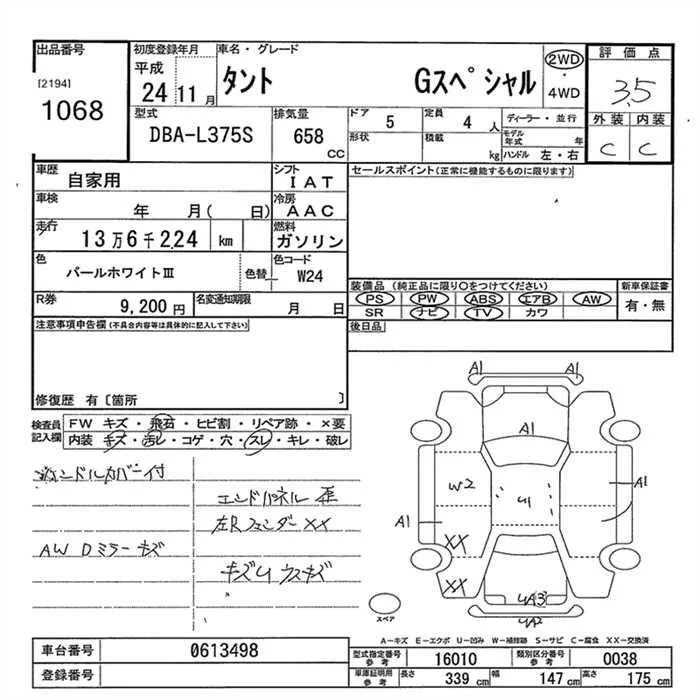 出品番号
[2194]
1068
初度登録年月
平成
24 11月
車名・グレード
タント Gスペシャル
2WD
・
4WD
評価点
3.5
外装 内装
C C
型式
DBA-L375S
排気量
658
CC
ドア
5
定員
4 人
ディーラー・並行
形状
積載
kg
モデル
年式 年
ハンドル 左・右
車歴
自家用
シフト
IAT
車検
年 月( 日)
冷房
AAC
走行
13万6千224 km
燃料
ガソリン
色
パールホワイトⅢ
色替
色コード
W24
R券
9,200円
名変通知期限
月 日
セールスポイント(正常に機能するものに限ります)
装備品 (純正品に限り○をつけてください)
PS PW ABS エアB AW
SR ナビ TV カワ
新車保証書
有・無
後日品
注意事項申告欄(不具合内容等は具体的に記入して下さい)
修復歴 有〔箇所 〕
検査員
記入欄
FW キズ・飛石・ヒビ割・リペア跡・×要
内装 キズ・汚レ・コゲ・穴・スレ・キレ・破レ
ハンドルカバー付
エンドパネル 歪
左Rフェンダー XX
AW Dミラーキズ
キズU ウスキズ
A1 A1
A1
W2
U1
A1
A1
XX
XX
UA3
UA2
スペア
A-キズ E-エクボ U-凹み W-補修跡 S-サビ C-腐食 XX-交換済
車台番号
0613498
登録番号
型式指定番号
参考
16010
類別区分番号
参考
0038
車庫証明用
参考
長さ
339 cm
幅
147 cm
高さ
175 cm